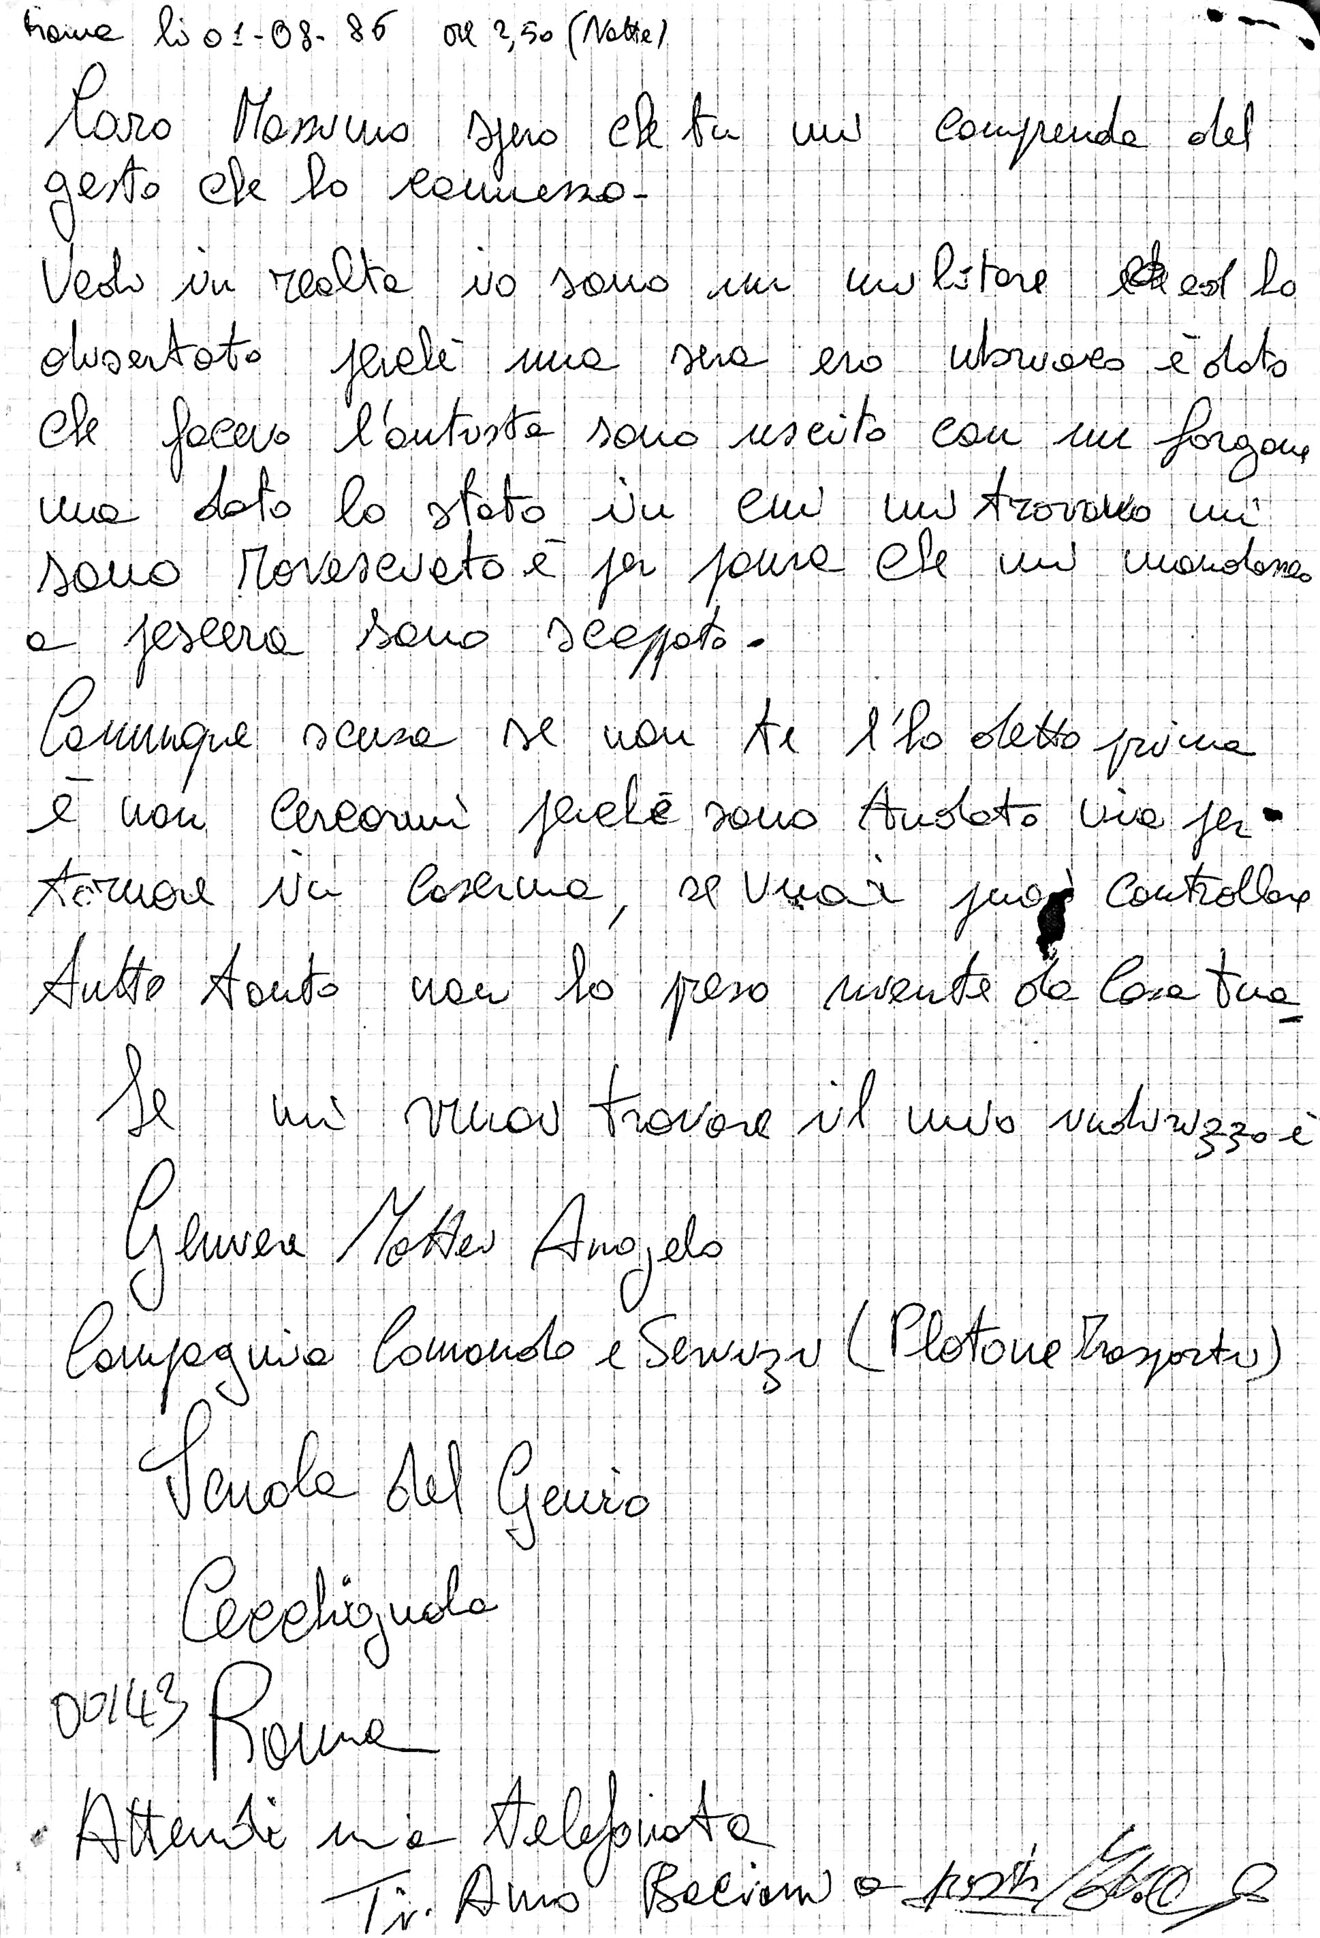 Roma lì 01-08-86 ore 2,50 (Notte)
Caro Massimo spero che tu mi comprenda del
gesto che ho commesso-
Vedi in realta io sono un militare ed ho
disertato perchè una sera ero ubriaco è dato
che facevo l'autista sono uscito con un forgone
ma dato lo stato in cui mi trovavo mi
sono rovesciato è per paura che mi mandasseo
a pescera sono scappato.
Comunque scusa se non te l'ho detto prima
è non cercarmi perchè sono Andato via per
tornare in caserma, se vuoi puoi controllare
tutto tanto non ho preso niente da Casa tua
Se mi vuoi trovare il mio indirizzo è
Matteo Angelo
Compagnia Comando e Servizi (Plotone Trasporti)
Scuola del Genio
Cecchignola
00143 Roma
Attendi mia telefonata
Ti. Amo Bacioni a presti